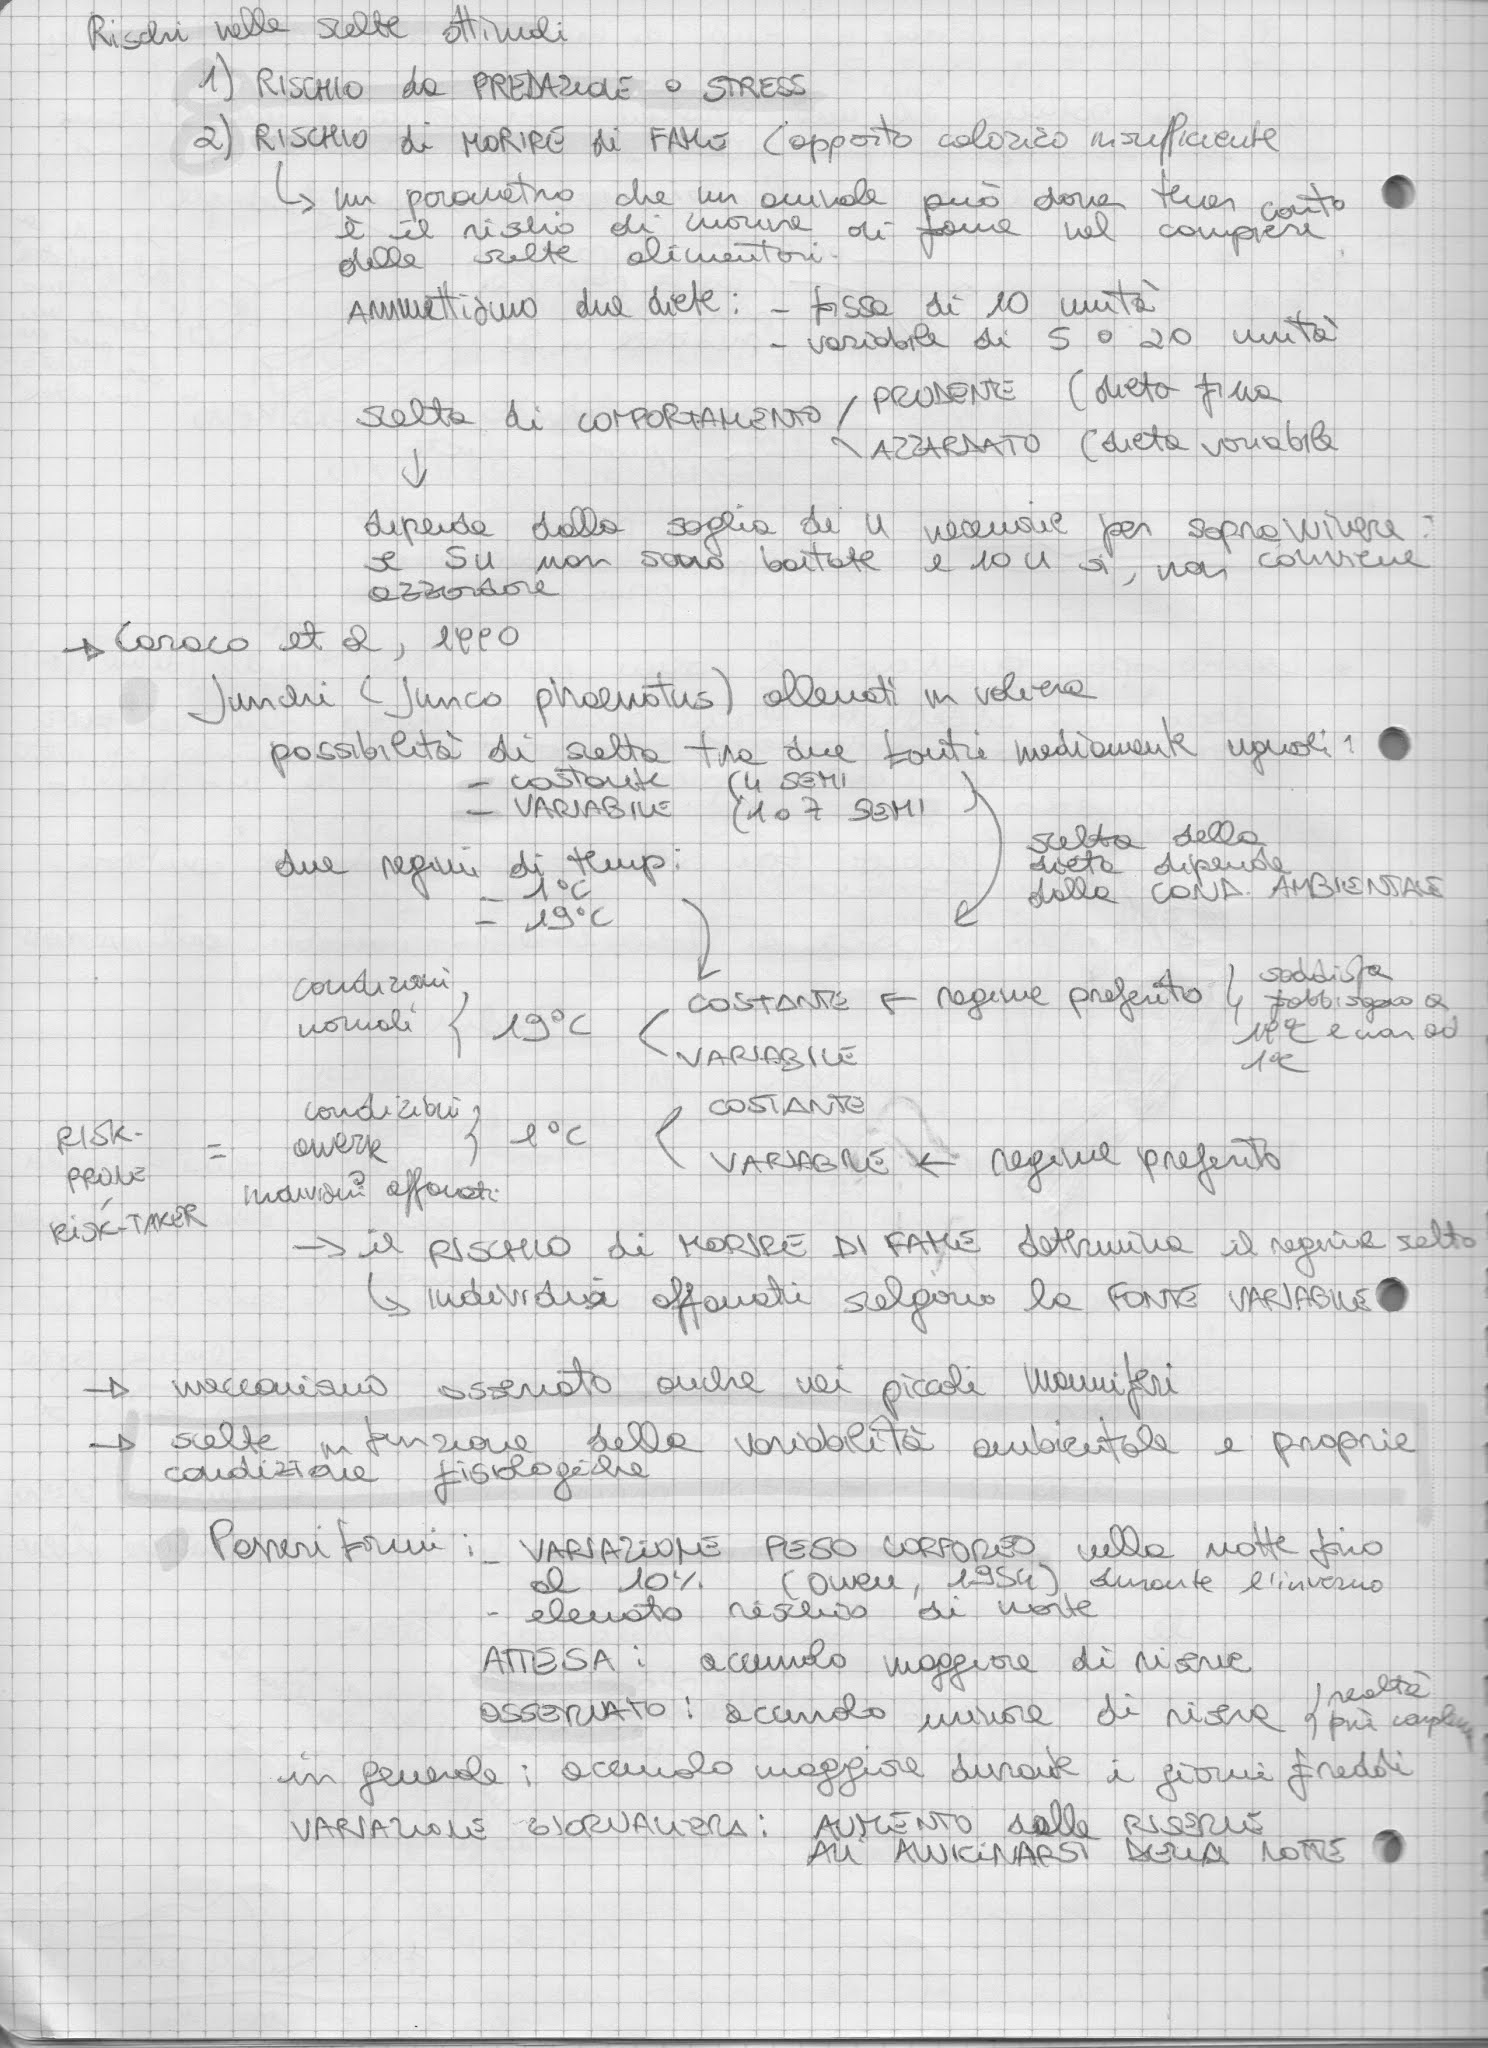 Rischi nelle scelte ottimali
1) RISCHIO da PREDAZIONE o STRESS
2) RISCHIO di MORIRE di FAME (apporto calorico insufficiente
↳ un parametro che un animale può dover tener conto
è il rischio di morire di fame nel compiere
delle scelte alimentari.
AMMettiamo due diete: - fissa di 10 unità
- variabile di 5 o 20 unità
scelta di COMPORTAMENTO / PRUDENTE (dieta fissa
\ AZZARDATO (dieta variabile
↓
dipende dalla soglia di u necessarie per sopravvivere:
se 5u non sono bastate e 10 u sì, non conviene
azzardare
→ Caraco et al, 1990
Junchi (Junco phaenotus) allenati in voliera
possibilità di scelta tra due fonti mediamente uguali:
- costante (4 SEMI
- VARIABILE (1 o 7 SEMI
scelta della
dieta dipende
dalla COND. AMBIENTALE
due regimi di temp:
- 1°C
- 19°C
condizioni
normali } 19°C < COSTANTE ← regime preferito
VARIABILE
soddisfa
fabbisogno a
19°C e non ad
1°C
RISK-
PRONE
RISK-TAKER
= condizioni
avverse } 1°C < COSTANTE
VARIABILE ← regime preferito
individui affamati
→ il RISCHIO di MORIRE DI FAME determina il regime scelto
↳ individui affamati scelgono la FONTE VARIABILE
→ meccanismo osservato anche nei piccoli Mammiferi
→ scelte in funzione della variabilità ambientale e proprie
condizione fisiologiche
Passeriformi: - VARIAZIONE PESO CORPOREO nella notte fino
al 10% (Owen, 1954) durante l'inverno
- elevato rischio di morte
ATTESA: accumulo maggiore di riserve
OSSERVATO: accumulo minore di riserve } realtà
più
in generale: accumulo maggiore durante i giorni freddi
VARIAZIONE GIORNALIERA: AUMENTO delle RISERVE
ALL' AVVICINARSI DELLA NOTTE